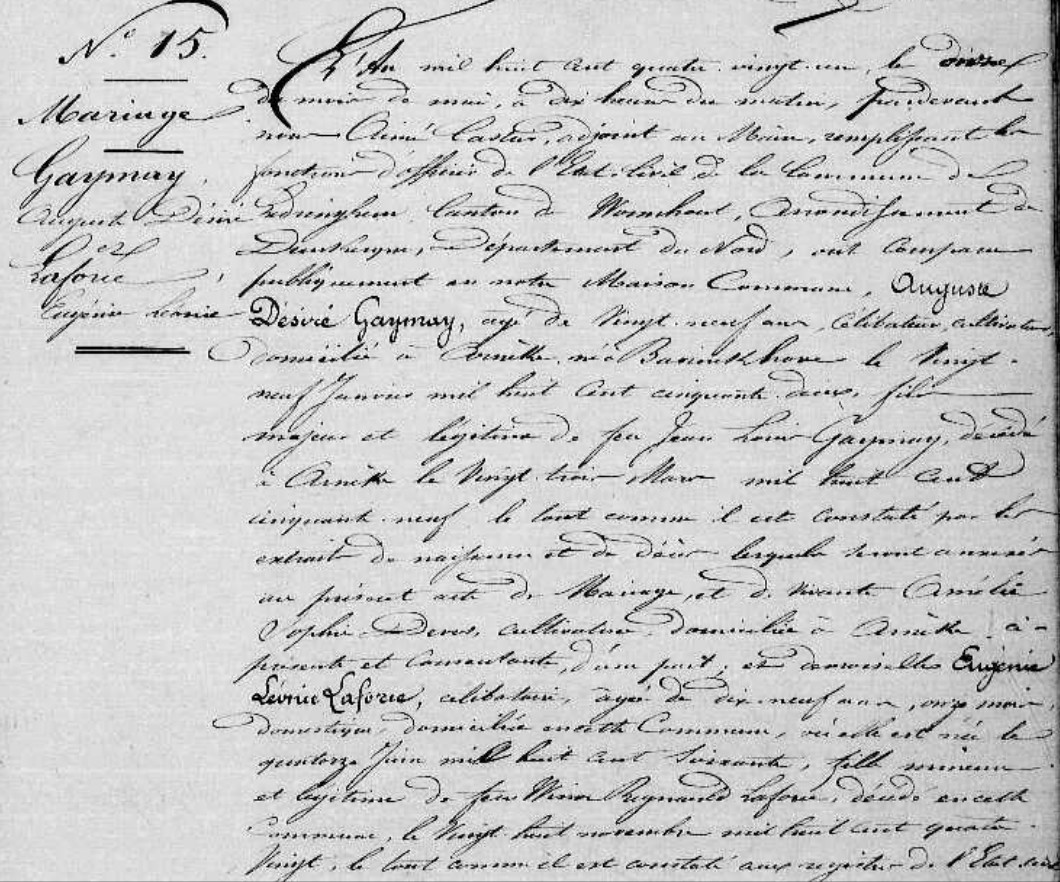 N.º 15.
Mariage
Gaymay
Auguste Désiré
et
Laforce
Eugénie Léonie
L'An mil huit cent quatre vingt-un, le
du mois de mai, à dix heures du matin, pardevant
nous Aimé adjoint au Maire, remplissant les
fonctions d'officier de l'Etat-Civil de la Commune de
Ledringhem, Canton de Wormhout, Arrondissement de
Dunkerque, Département du Nord, ont comparu
publiquement en notre Maison Commune, Auguste
Désiré Gaymay, âgé de Vingt-neuf ans, célibataire, cultivateur,
domicilié à Arnèke, né à le Vingt-
neuf Janvier mil huit cent cinquante deux, fils
majeur et légitime de feu Jean Louis Gaymay, décédé
à Arnèke le Vingt-trois Mars mil huit Cent
cinquante-neuf le tout comme il est constaté par les
extraits de naissance et de décès lesquels seront annexés
au présent acte de Mariage, et de vivante Amélie
Sophie cultivatrice, domiciliée à Arnèke, ci-
présente et Consentante, d'une part; et demoiselle Eugénie
Léonie Laforce, célibataire, âgée de dix-neuf ans, onze mois,
domestique, domiciliée en cette Commune, où elle est née le
quatorze Juin mil huit cent soixante, fille mineure
et légitime de feu Winoc Laforce, décédé en cette
Commune, le Vingt-huit novembre mil huit cent quatre-
Vingt, le tout comme il est constaté aux registres de l'Etat-civil